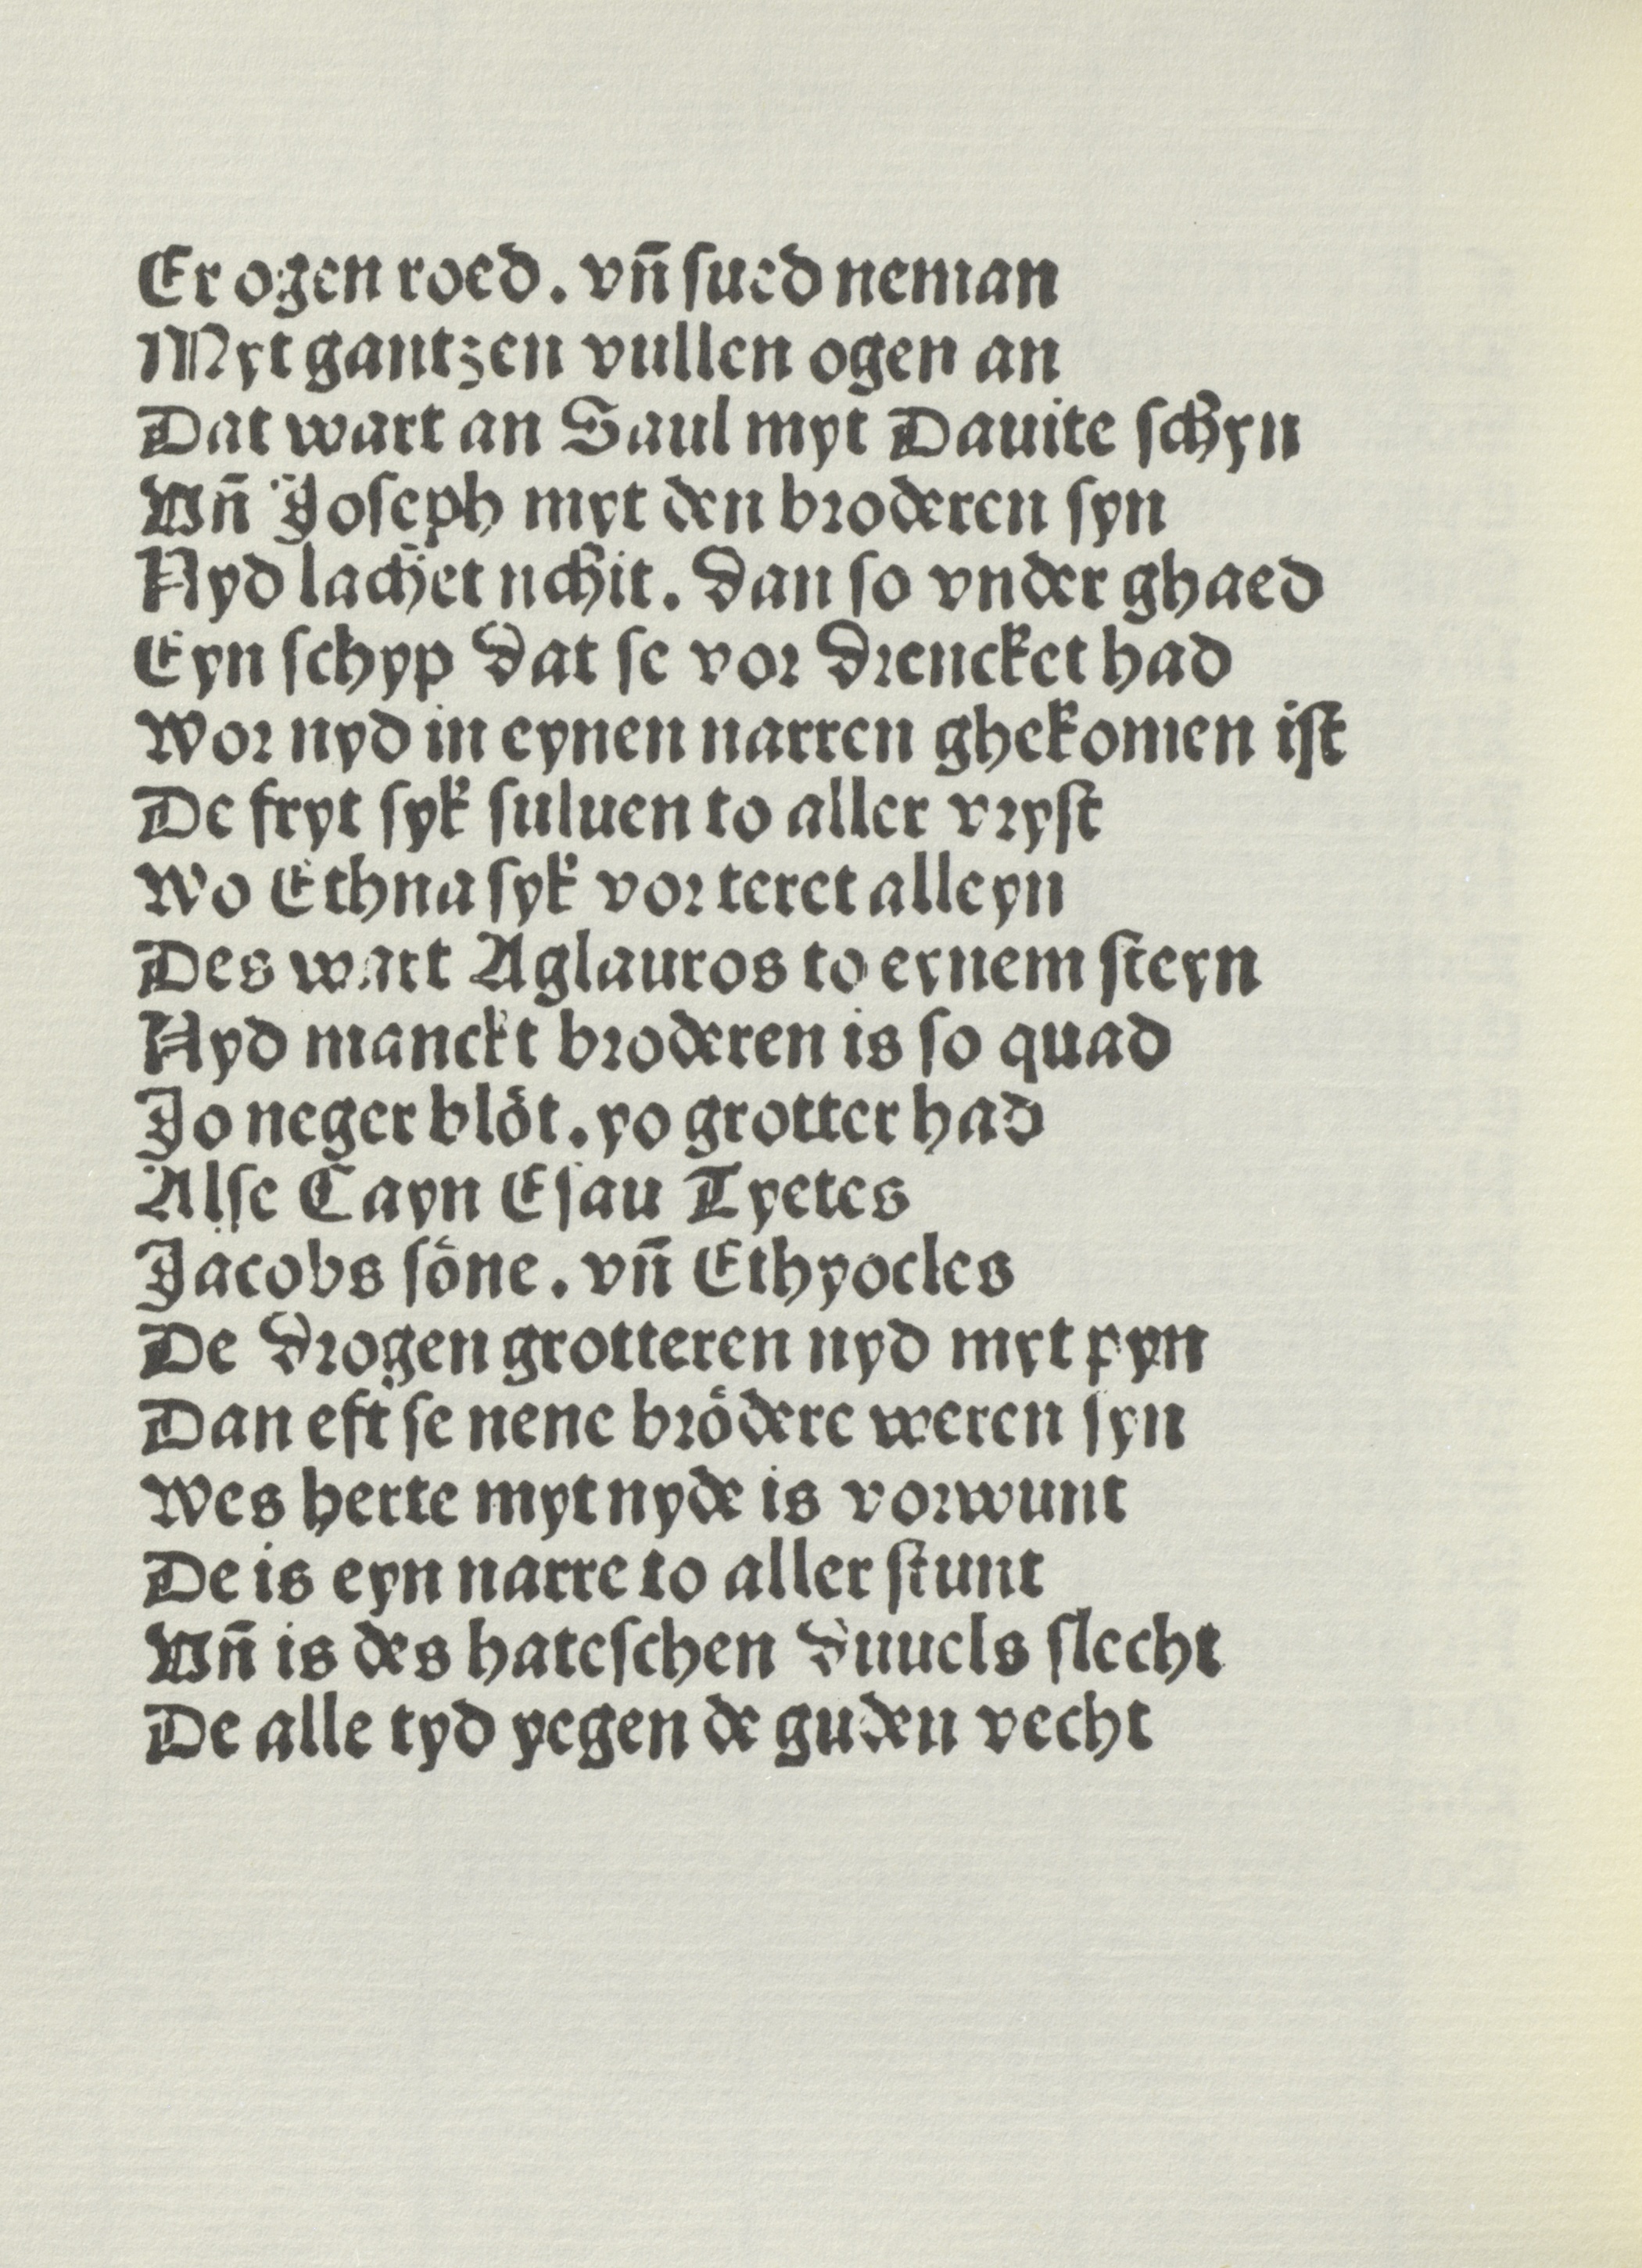 Er ogen roed. vn̄ ſued neman
Myt gantzen vullen ogen an
Dat wart an Saul myt Dauite ſchyn
Vn̄ Joſeph myt den broderen ſyn
Nyd lachet nchit. dan ſo vnder ghaed
Eyn ſchyp dat ſe vor drencket had
Wor nyd in eynen narren ghekomen iſt
De fryt ſyk ſuluen to aller vryſt
Wo Ethna ſyk vor teret alleyn
Des wart Aglauros to eynem ſteyn
Nyd manckt broderen is ſo quad
Jo neger bloͤt. yo grotter had
Alſe Cayn Eſau Tyetes
Jacobs ſoͤne. vn̄ Ethyocles
De drogen grotteren nyd myt pyn
Dan eft ſe nene broͤdere weren ſyn
Wes herte myt nyde is vorwunt
De is eyn narre to aller ſtunt
Vn̄ is des hateſchen duuels ſlecht
De alle tyd yegen de guden vecht